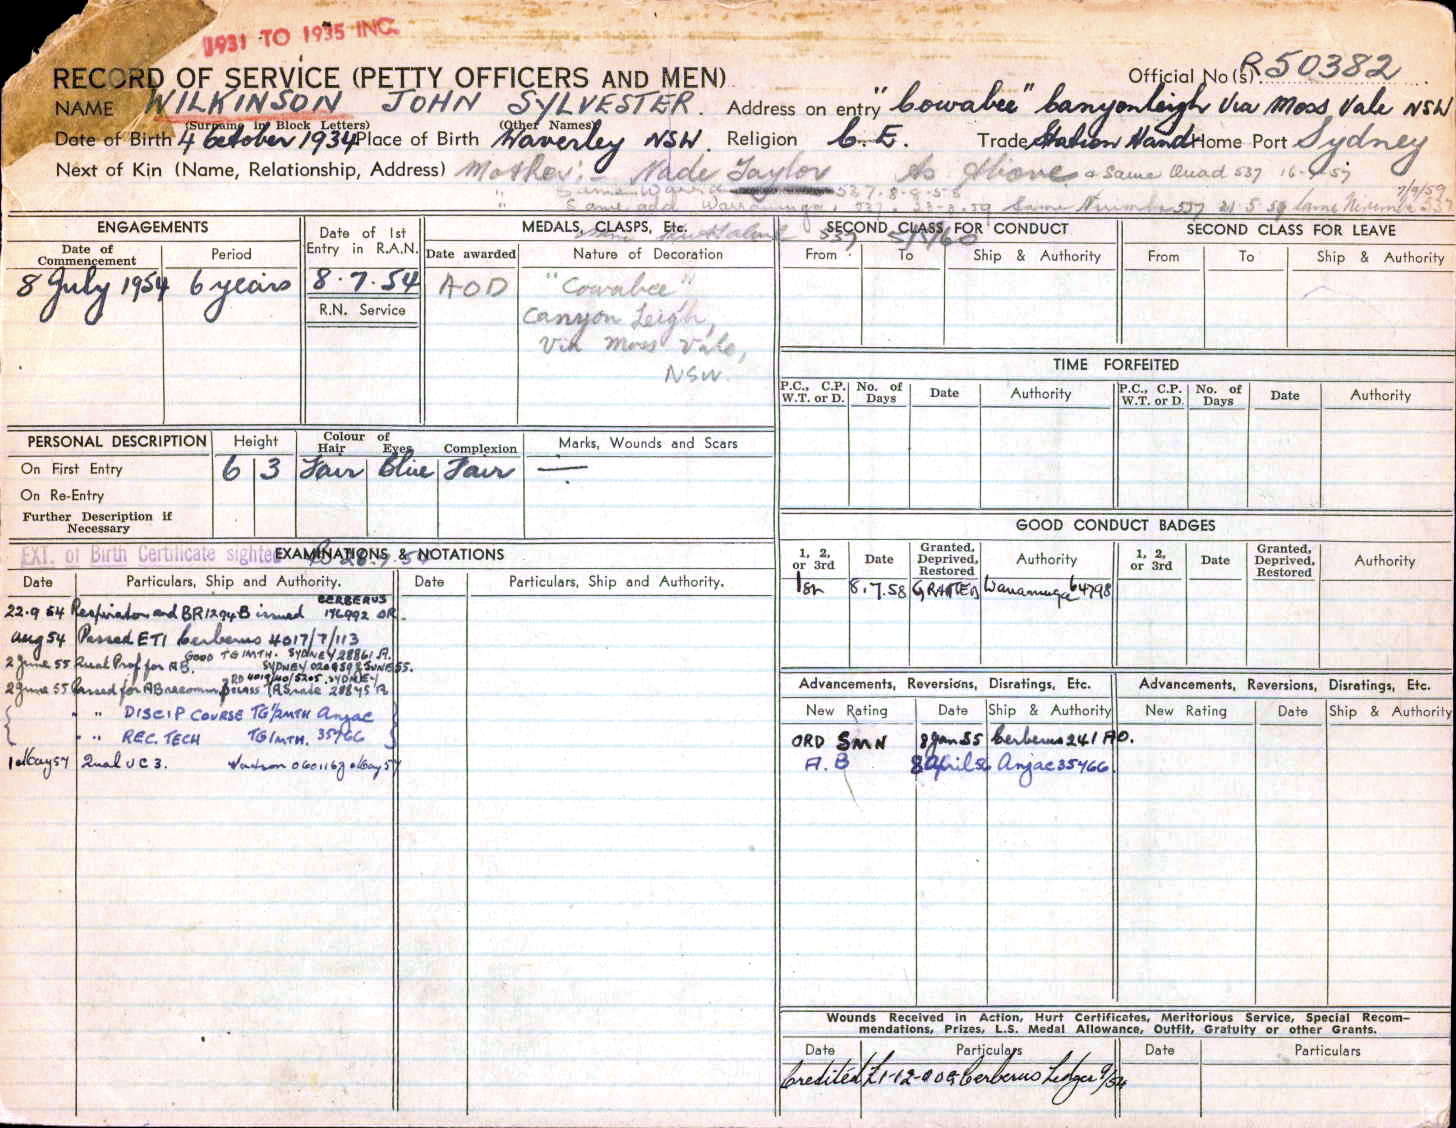 1931 TO 1935 INC.
RECORD OF SERVICE (PETTY OFFICERS AND MEN)
Official No (s). R50382
NAME WILKINSON JOHN SYLVESTER. Address on entry "Cowabee" Canyonleigh Via Moss Vale NSW
(Surname in Block Letters) (Other Names)
Date of Birth 4 October 1934 Place of Birth Waverley NSW. Religion C. E. Trade Station Hand Home Port Sydney
Next of Kin (Name, Relationship, Address) Mother:- Nade Taylor As Above & Same Quad 537 16-9-57
537. 8-9-58 7/9/59
" Same add Warramunga. 537. 23-2-59 Same 537 21-5-59 Same
537 5/5/60
ENGAGEMENTS
Date of Commencement Period
8 July 1954 6 years
Date of 1st Entry in R.A.N.
8.7.54
R.N. Service
MEDALS, CLASPS, Etc.
Date awarded Nature of Decoration
AOD "Cowabee"
Canyon Leigh,
Via Moss Vale,
NSW.
SECOND CLASS FOR CONDUCT
From To Ship & Authority
SECOND CLASS FOR LEAVE
From To Ship & Authority
TIME FORFEITED
P.C., C.P. W.T. or D. No. of Days Date Authority P.C., C.P. W.T. or D. No. of Days Date Authority
PERSONAL DESCRIPTION Height Colour of Hair Eyes Complexion Marks, Wounds and Scars
On First Entry 6 3 Fair Blue Fair —
On Re-Entry
Further Description if Necessary
GOOD CONDUCT BADGES
1, 2, or 3rd Date Granted, Deprived, Restored Authority 1, 2, or 3rd Date Granted, Deprived, Restored Authority
1st 8.7.58 GRANTED Warramunga 64798
EXT. of Birth Certificate sighted
EXAMINATIONS & NOTATIONS
Date Particulars, Ship and Authority. Date Particulars, Ship and Authority.
CERBERUS
22.9 54 Respirator and BR1294B issued 176992 OR.
Aug 54 Passed ETI Cerberus 4017/7/113
GOOD TG1MTH. SYDNEY 28861 A.
2 June 55 Qual Prof for AB. SYDNEY
2 June 55 Passed for AB
" " DISCIP COURSE TG1/2MTH Anzac
" " REC. TECH TG1MTH. 35766
1 May 57 Qual UC3. Watson
Advancements, Reversions, Disratings, Etc. Advancements, Reversions, Disratings, Etc.
New Rating Date Ship & Authority New Rating Date Ship & Authority
ORD SMN 8 Jan 55 Cerberus 241 AO.
A. B 8 April 56 Anzac 35766.
Wounds Received in Action, Hurt Certificates, Meritorious Service, Special Recom-
mendations, Prizes, L.S. Medal Allowance, Outfit, Gratuity or other Grants.
Date Particulars Date Particulars
Credited £1-12-0 Cerberus Ledger 9/54